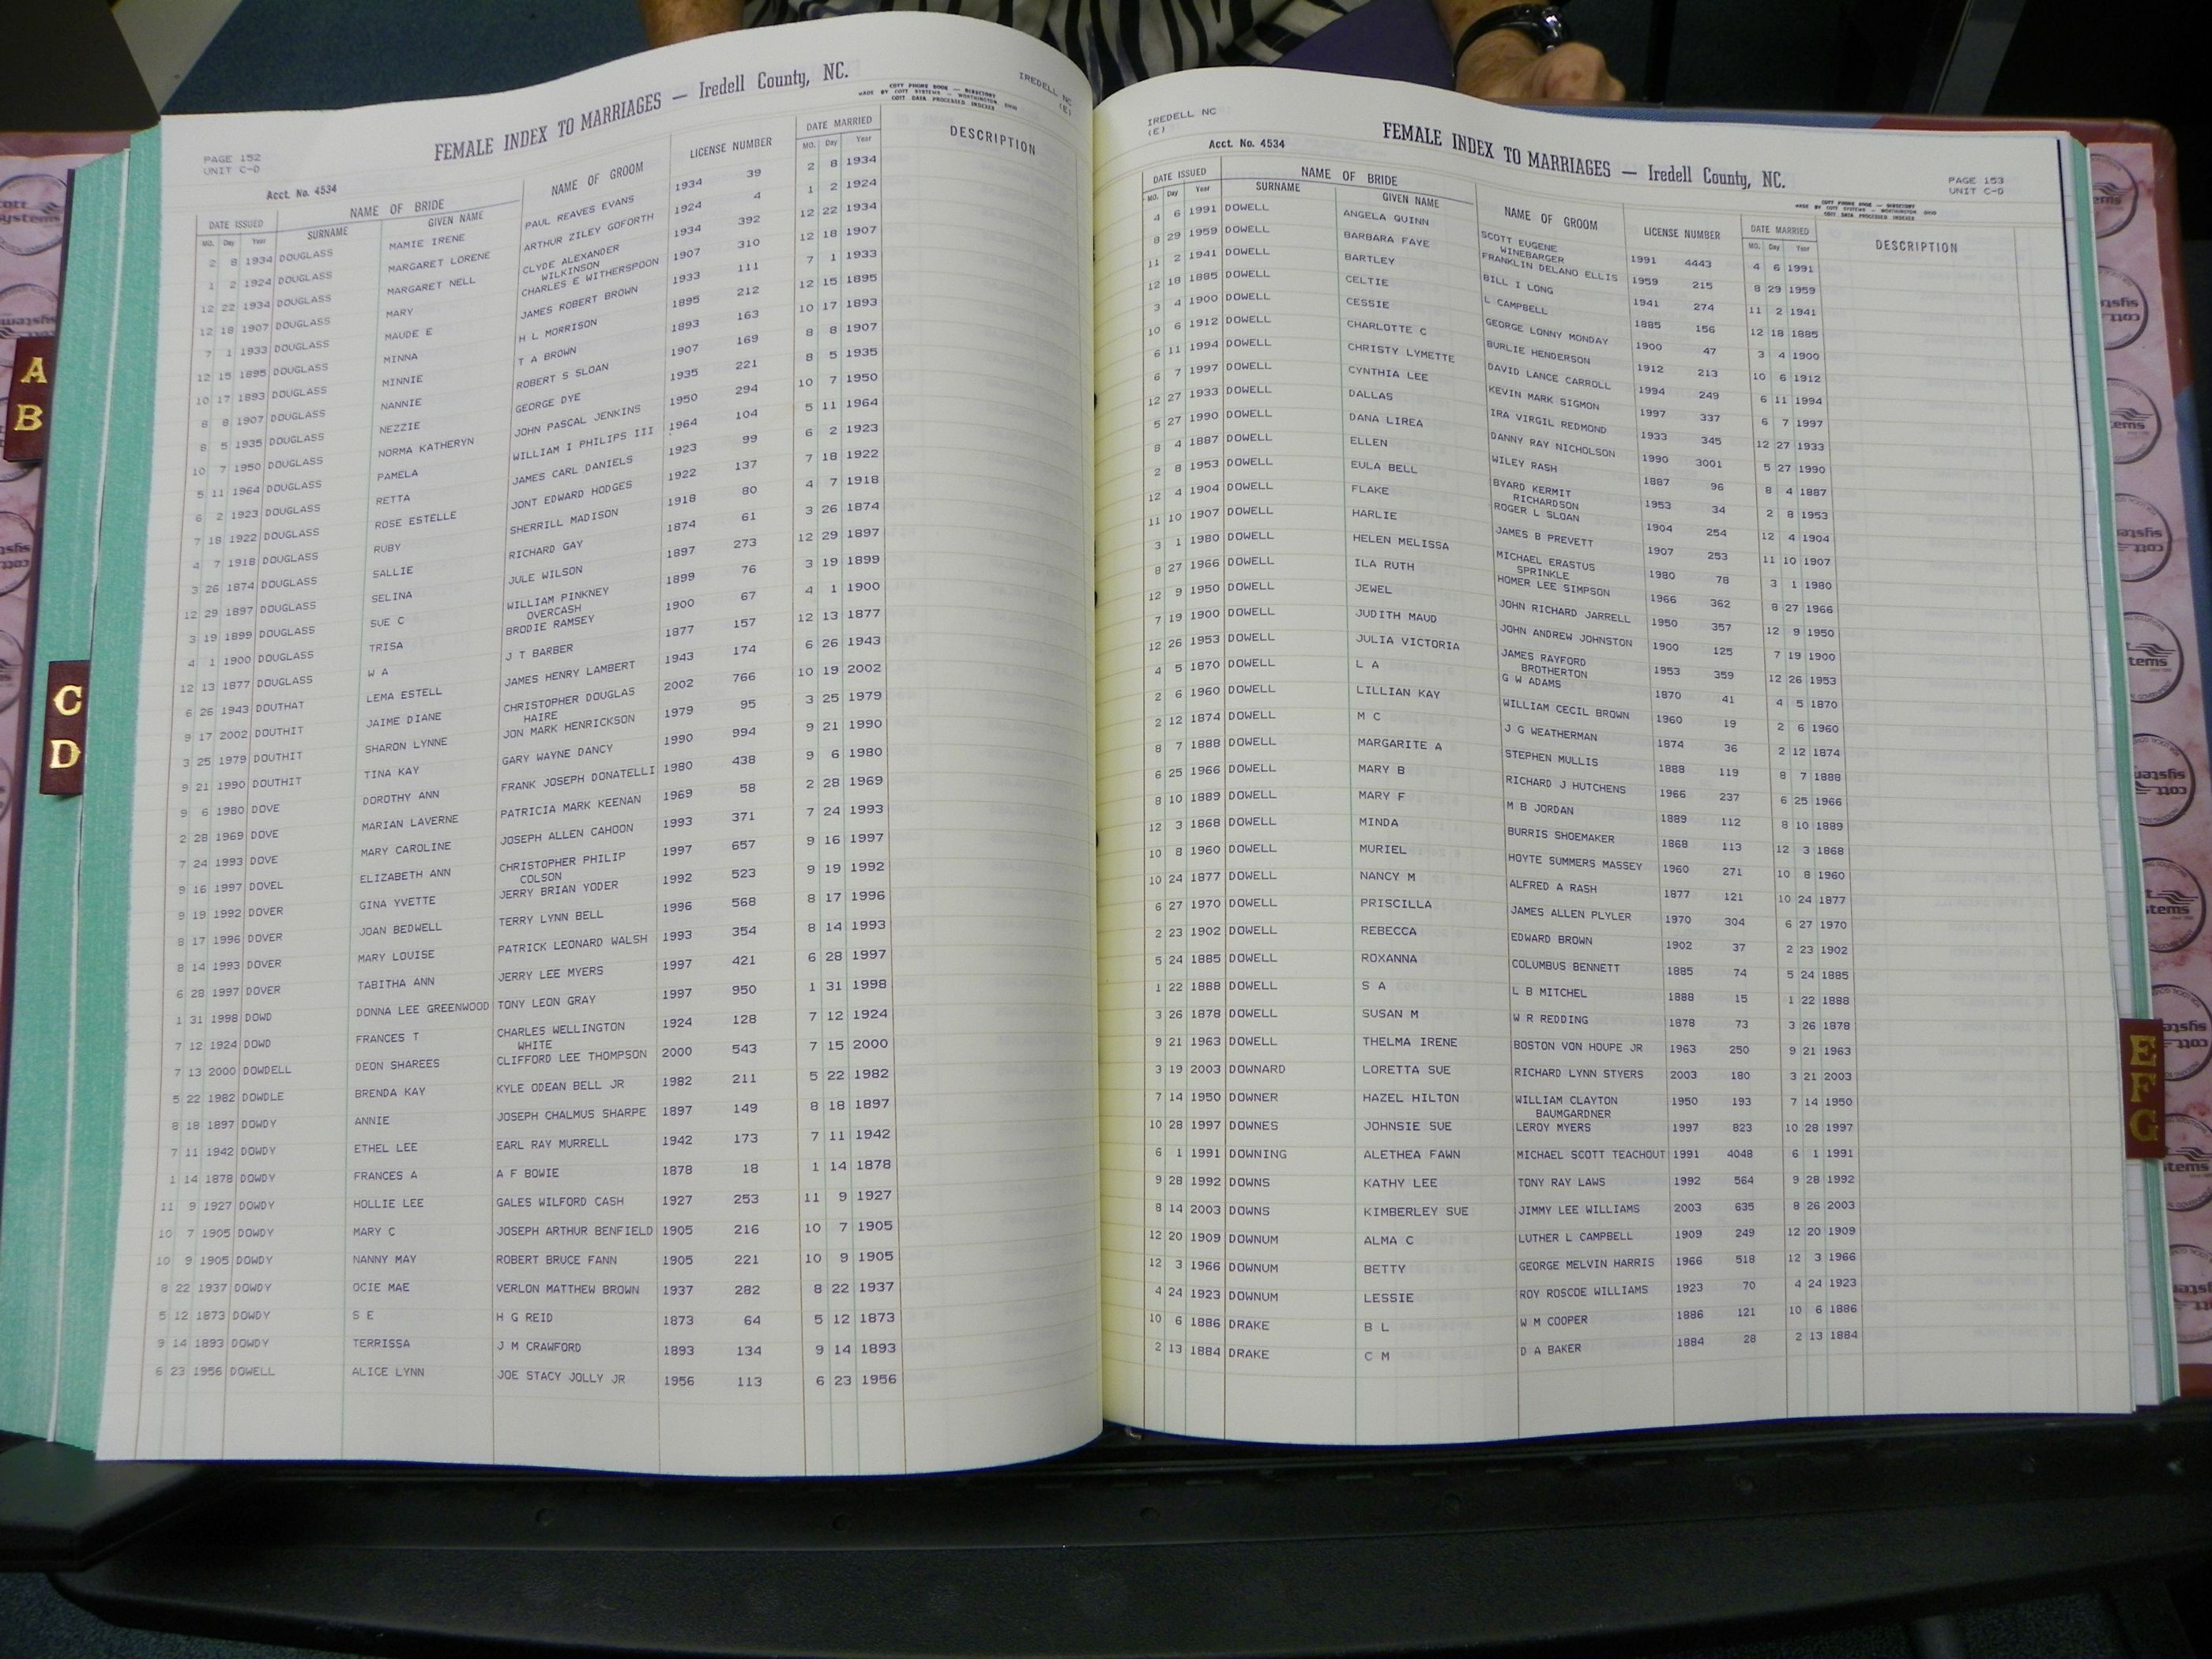 IREDELL NC
(E)
FEMALE INDEX TO MARRIAGES — Iredell County, NC.
COTT PHONE BOOK — DIRECTORY
MADE BY COTT SYSTEMS — WORTHINGTON OHIO
COTT DATA PROCESSED INDEXES
PAGE 152
UNIT C-D
Acct. No. 4534
DATE ISSUED NAME OF BRIDE NAME OF GROOM LICENSE NUMBER DATE MARRIED DESCRIPTION
MO. Day Year SURNAME GIVEN NAME MO. Day Year
2 8 1934 DOUGLASS MAMIE IRENE PAUL REAVES EVANS 1934 39 2 8 1934
1 2 1924 DOUGLASS MARGARET LORENE ARTHUR ZILEY GOFORTH 1924 4 1 2 1924
12 22 1934 DOUGLASS MARGARET NELL CLYDE ALEXANDER 1934 392 12 22 1934
WILKINSON
12 18 1907 DOUGLASS MARY CHARLES E WITHERSPOON 1907 310 12 18 1907
7 1 1933 DOUGLASS MAUDE E JAMES ROBERT BROWN 1933 111 7 1 1933
12 15 1895 DOUGLASS MINNA H L MORRISON 1895 212 12 15 1895
10 17 1893 DOUGLASS MINNIE T A BROWN 1893 163 10 17 1893
8 8 1907 DOUGLASS NANNIE ROBERT S SLOAN 1907 169 8 8 1907
8 5 1935 DOUGLASS NEZZIE GEORGE DYE 1935 221 8 5 1935
10 7 1950 DOUGLASS NORMA KATHERYN JOHN PASCAL JENKINS 1950 294 10 7 1950
5 11 1964 DOUGLASS PAMELA WILLIAM I PHILIPS III 1964 104 5 11 1964
6 2 1923 DOUGLASS RETTA JAMES CARL DANIELS 1923 99 6 2 1923
7 18 1922 DOUGLASS ROSE ESTELLE JONT EDWARD HODGES 1922 137 7 18 1922
4 7 1918 DOUGLASS RUBY SHERRILL MADISON 1918 80 4 7 1918
3 26 1874 DOUGLASS SALLIE RICHARD GAY 1874 61 3 26 1874
12 29 1897 DOUGLASS SELINA JULE WILSON 1897 273 12 29 1897
3 19 1899 DOUGLASS SUE C WILLIAM PINKNEY 1899 76 3 19 1899
OVERCASH
4 1 1900 DOUGLASS TRISA BRODIE RAMSEY 1900 67 4 1 1900
12 13 1877 DOUGLASS W A J T BARBER 1877 157 12 13 1877
6 26 1943 DOUTHAT LEMA ESTELL JAMES HENRY LAMBERT 1943 174 6 26 1943
9 17 2002 DOUTHIT JAIME DIANE CHRISTOPHER DOUGLAS 2002 766 10 19 2002
HAIRE
3 25 1979 DOUTHIT SHARON LYNNE JON MARK HENRICKSON 1979 95 3 25 1979
9 21 1990 DOUTHIT TINA KAY GARY WAYNE DANCY 1990 994 9 21 1990
9 6 1980 DOVE DOROTHY ANN FRANK JOSEPH DONATELLI 1980 438 9 6 1980
2 28 1969 DOVE MARIAN LAVERNE PATRICIA MARK KEENAN 1969 58 2 28 1969
7 24 1993 DOVE MARY CAROLINE JOSEPH ALLEN CAHOON 1993 371 7 24 1993
9 16 1997 DOVEL ELIZABETH ANN CHRISTOPHER PHILIP 1997 657 9 16 1997
COLSON
9 19 1992 DOVER GINA YVETTE JERRY BRIAN YODER 1992 523 9 19 1992
8 17 1996 DOVER JOAN BEDWELL TERRY LYNN BELL 1996 568 8 17 1996
8 14 1993 DOVER MARY LOUISE PATRICK LEONARD WALSH 1993 354 8 14 1993
6 28 1997 DOVER TABITHA ANN JERRY LEE MYERS 1997 421 6 28 1997
1 31 1998 DOWD DONNA LEE GREENWOOD TONY LEON GRAY 1997 950 1 31 1998
7 12 1924 DOWD FRANCES T CHARLES WELLINGTON 1924 128 7 12 1924
WHITE
7 13 2000 DOWDELL DEON SHAREES CLIFFORD LEE THOMPSON 2000 543 7 15 2000
5 22 1982 DOWDLE BRENDA KAY KYLE ODEAN BELL JR 1982 211 5 22 1982
8 18 1897 DOWDY ANNIE JOSEPH CHALMUS SHARPE 1897 149 8 18 1897
7 11 1942 DOWDY ETHEL LEE EARL RAY MURRELL 1942 173 7 11 1942
1 14 1878 DOWDY FRANCES A A F BOWIE 1878 18 1 14 1878
11 9 1927 DOWDY HOLLIE LEE GALES WILFORD CASH 1927 253 11 9 1927
10 7 1905 DOWDY MARY C JOSEPH ARTHUR BENFIELD 1905 216 10 7 1905
10 9 1905 DOWDY NANNY MAY ROBERT BRUCE FANN 1905 221 10 9 1905
8 22 1937 DOWDY OCIE MAE VERLON MATTHEW BROWN 1937 282 8 22 1937
5 12 1873 DOWDY S E H G REID 1873 64 5 12 1873
9 14 1893 DOWDY TERRISSA J M CRAWFORD 1893 134 9 14 1893
6 23 1956 DOWELL ALICE LYNN JOE STACY JOLLY JR 1956 113 6 23 1956
IREDELL NC
(E)
Acct. No. 4534
FEMALE INDEX TO MARRIAGES — Iredell County, NC.
PAGE 153
UNIT C-D
COTT PHONE BOOK — DIRECTORY
MADE BY COTT SYSTEMS — WORTHINGTON OHIO
COTT DATA PROCESSED INDEXES
DATE ISSUED NAME OF BRIDE NAME OF GROOM LICENSE NUMBER DATE MARRIED DESCRIPTION
MO. Day Year SURNAME GIVEN NAME MO. Day Year
4 6 1991 DOWELL ANGELA QUINN SCOTT EUGENE 1991 4443 4 6 1991
WINEBARGER
8 29 1959 DOWELL BARBARA FAYE FRANKLIN DELANO ELLIS 1959 215 8 29 1959
11 2 1941 DOWELL BARTLEY BILL I LONG 1941 274 11 2 1941
12 18 1885 DOWELL CELTIE L CAMPBELL 1885 156 12 18 1885
3 4 1900 DOWELL CESSIE GEORGE LONNY MONDAY 1900 47 3 4 1900
10 6 1912 DOWELL CHARLOTTE C BURLIE HENDERSON 1912 213 10 6 1912
6 11 1994 DOWELL CHRISTY LYMETTE DAVID LANCE CARROLL 1994 249 6 11 1994
6 7 1997 DOWELL CYNTHIA LEE KEVIN MARK SIGMON 1997 337 6 7 1997
12 27 1933 DOWELL DALLAS IRA VIRGIL REDMOND 1933 345 12 27 1933
5 27 1990 DOWELL DANA LIREA DANNY RAY NICHOLSON 1990 3001 5 27 1990
8 4 1887 DOWELL ELLEN WILEY RASH 1887 96 8 4 1887
2 8 1953 DOWELL EULA BELL BYARD KERMIT 1953 34 2 8 1953
RICHARDSON
12 4 1904 DOWELL FLAKE ROGER L SLOAN 1904 254 12 4 1904
11 10 1907 DOWELL HARLIE JAMES B PREVETT 1907 253 11 10 1907
3 1 1980 DOWELL HELEN MELISSA MICHAEL ERASTUS 1980 78 3 1 1980
SPRINKLE
8 27 1966 DOWELL ILA RUTH HOMER LEE SIMPSON 1966 362 8 27 1966
12 9 1950 DOWELL JEWEL JOHN RICHARD JARRELL 1950 357 12 9 1950
7 19 1900 DOWELL JUDITH MAUD JOHN ANDREW JOHNSTON 1900 125 7 19 1900
12 26 1953 DOWELL JULIA VICTORIA JAMES RAYFORD 1953 359 12 26 1953
BROTHERTON
4 5 1870 DOWELL L A G W ADAMS 1870 41 4 5 1870
2 6 1960 DOWELL LILLIAN KAY WILLIAM CECIL BROWN 1960 19 2 6 1960
2 12 1874 DOWELL M C J G WEATHERMAN 1874 36 2 12 1874
8 7 1888 DOWELL MARGARITE A STEPHEN MULLIS 1888 119 8 7 1888
6 25 1966 DOWELL MARY B RICHARD J HUTCHENS 1966 237 6 25 1966
8 10 1889 DOWELL MARY F M B JORDAN 1889 112 8 10 1889
12 3 1868 DOWELL MINDA BURRIS SHOEMAKER 1868 113 12 3 1868
10 8 1960 DOWELL MURIEL HOYTE SUMMERS MASSEY 1960 271 10 8 1960
10 24 1877 DOWELL NANCY M ALFRED A RASH 1877 121 10 24 1877
6 27 1970 DOWELL PRISCILLA JAMES ALLEN PLYLER 1970 304 6 27 1970
2 23 1902 DOWELL REBECCA EDWARD BROWN 1902 37 2 23 1902
5 24 1885 DOWELL ROXANNA COLUMBUS BENNETT 1885 74 5 24 1885
1 22 1888 DOWELL S A L B MITCHEL 1888 15 1 22 1888
3 26 1878 DOWELL SUSAN M W R REDDING 1878 73 3 26 1878
9 21 1963 DOWELL THELMA IRENE BOSTON VON HOUPE JR 1963 250 9 21 1963
3 19 2003 DOWNARD LORETTA SUE RICHARD LYNN STYERS 2003 180 3 21 2003
7 14 1950 DOWNER HAZEL HILTON WILLIAM CLAYTON 1950 193 7 14 1950
BAUMGARDNER
10 28 1997 DOWNES JOHNSIE SUE LEROY MYERS 1997 823 10 28 1997
6 1 1991 DOWNING ALETHEA FAWN MICHAEL SCOTT TEACHOUT 1991 4048 6 1 1991
9 28 1992 DOWNS KATHY LEE TONY RAY LAWS 1992 564 9 28 1992
8 14 2003 DOWNS KIMBERLEY SUE JIMMY LEE WILLIAMS 2003 635 8 26 2003
12 20 1909 DOWNUM ALMA C LUTHER L CAMPBELL 1909 249 12 20 1909
12 3 1966 DOWNUM BETTY GEORGE MELVIN HARRIS 1966 518 12 3 1966
4 24 1923 DOWNUM LESSIE ROY ROSCOE WILLIAMS 1923 70 4 24 1923
10 6 1886 DRAKE B L W M COOPER 1886 121 10 6 1886
2 13 1884 DRAKE C M D A BAKER 1884 28 2 13 1884
A
B
C
D
E
F
G